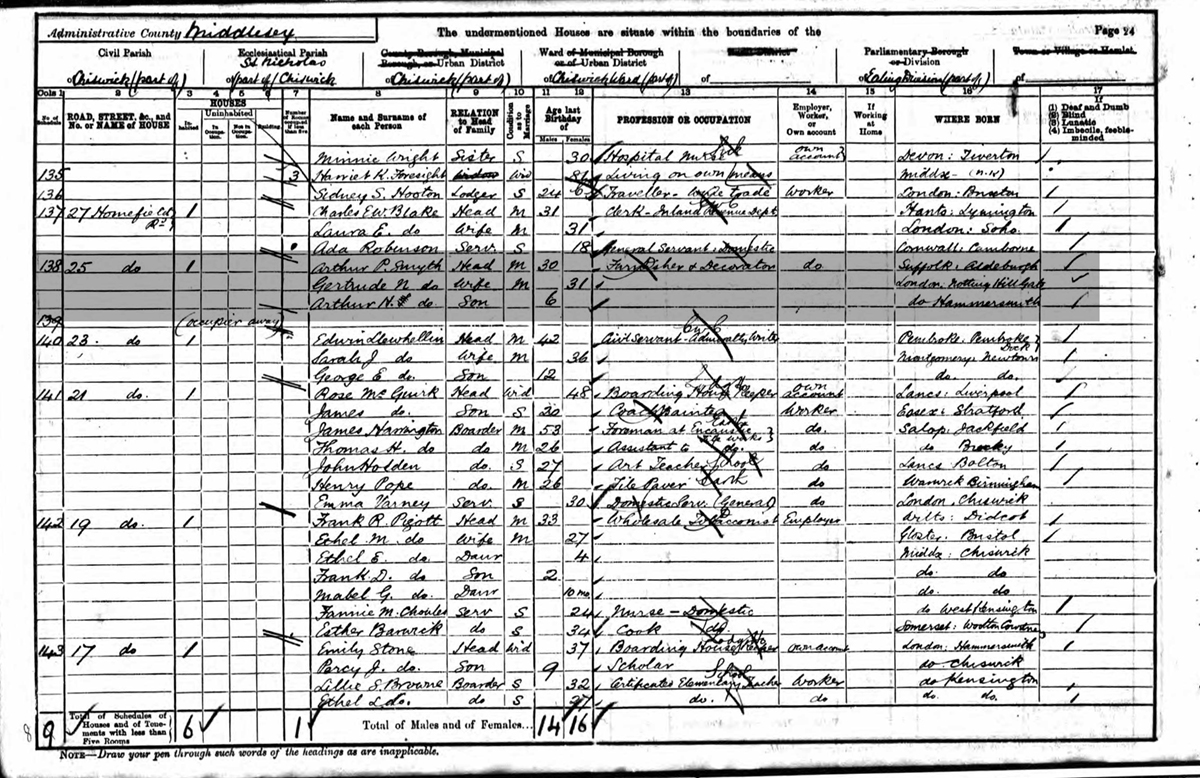 Administrative County Middlesex The undermentioned Houses are situate within the boundaries of the Page 24
Civil Parish Ecclesiastical Parish County Borough, Municipal Borough, or Urban District Ward of Municipal Borough or of Urban District Rural District Parliamentary Borough or Division Town or Village or Hamlet
of Chiswick (part of) St Nicholas (part of) Chiswick of Chiswick (part of) of Chiswick Ward (part of) of of Ealing Division (part of) of
Cols 1 2 3 4 5 6 7 8 9 10 11 12 13 14 15 16 17
No. of Schedule ROAD, STREET, &c., and No. or NAME of HOUSE HOUSES Inhabited Uninhabited In Occupation Not in Occupation Building Number of Rooms occupied if less than five Name and Surname of each Person RELATION to Head of Family Condition as to Marriage Age last Birthday of Males Females PROFESSION OR OCCUPATION Employer, Worker, or Own account If Working at Home WHERE BORN If (1) Deaf and Dumb (2) Blind (3) Lunatic (4) Imbecile, feeble-minded
Minnie Wright Sister S 30 Hospital Nurse own account Devon: Tiverton
135 3 Harriet K. Foresight Wid 81 Living on own means Middx (n.k)
136 Sidney S. Hooton Lodger S 24 Traveller trade Worker London:
137 27 Homefield Rd 1 Charles E W. Blake Head M 31 Clerk - Inland Revenue Dept Hants: Lymington
Laura E. do Wife M 31 London: Soho
Ada Robinson Serv S 18 General Servant: Domestic Cornwall: Camborne
138 25 do 1 Arthur P. Smyth Head M 30 Furnisher & Decorator do Suffolk: Aldeburgh
Gertrude N. do Wife M 31 London: Notting Hill Gate
Arthur H. do. Son 6 do Hammersmith
139 (occupier away)
140 23 do 1 Edwin Llewhellin Head M 42 Civil Servant - Admiralty Writer Pembroke. Pembroke Dock
Sarah J. do Wife M 36 Montgomery: Newtown
George E. do. Son 12 do. do.
141 21 do. 1 Rose McGuirk Head Wid 48 Boarding House Keeper own account Lancs: Liverpool
James do. Son S 30 Coach Painter Worker Essex: Stratford
James Harrington Boarder M 53 Foreman at Encaustic Tile Works do. Salop. Jackfield
Thomas H. do do M 26 Assistant to do. do do
John Holden do. S 27 Art Teacher School do Lancs Bolton
Henry Pope do. M 26 Tile Paver do Warwick Birmingham
Emma Varney Serv S 30 Domestic Serv. (General) do London. Chiswick
142 19 do. 1 Frank R. Pigott Head M 33 Wholesale Tobacconist Employer Wilts: Didcot
Ethel M. do Wife M 27 Gloster. Bristol
Ethel E. do Daur 4 Middx: Chiswick
Frank D. do Son 2 do. do
Mabel G. do Daur 10 mo do. do
Fannie M. Choules Serv S 24 Nurse - Domestic do West Kensington
Esther Barwick do S 34 Cook do Somerset: Wootton Courtney
143 17 do 1 Emily Stone Head Wid 37 Boarding House Keeper own account London: Hammersmith
Percy J. do. Son 9 Scholar do Chiswick
Lillie S. Browne Boarder S 32 Certificated Elementary Teacher Worker do Kensington
Ethel L. do. do S 27 do. do do. do.
9 Total of Schedules of Houses and of Tenements with less than Five Rooms 6 1 Total of Males and of Females... 14 16
NOTE—Draw your pen through such words of the headings as are inapplicable.